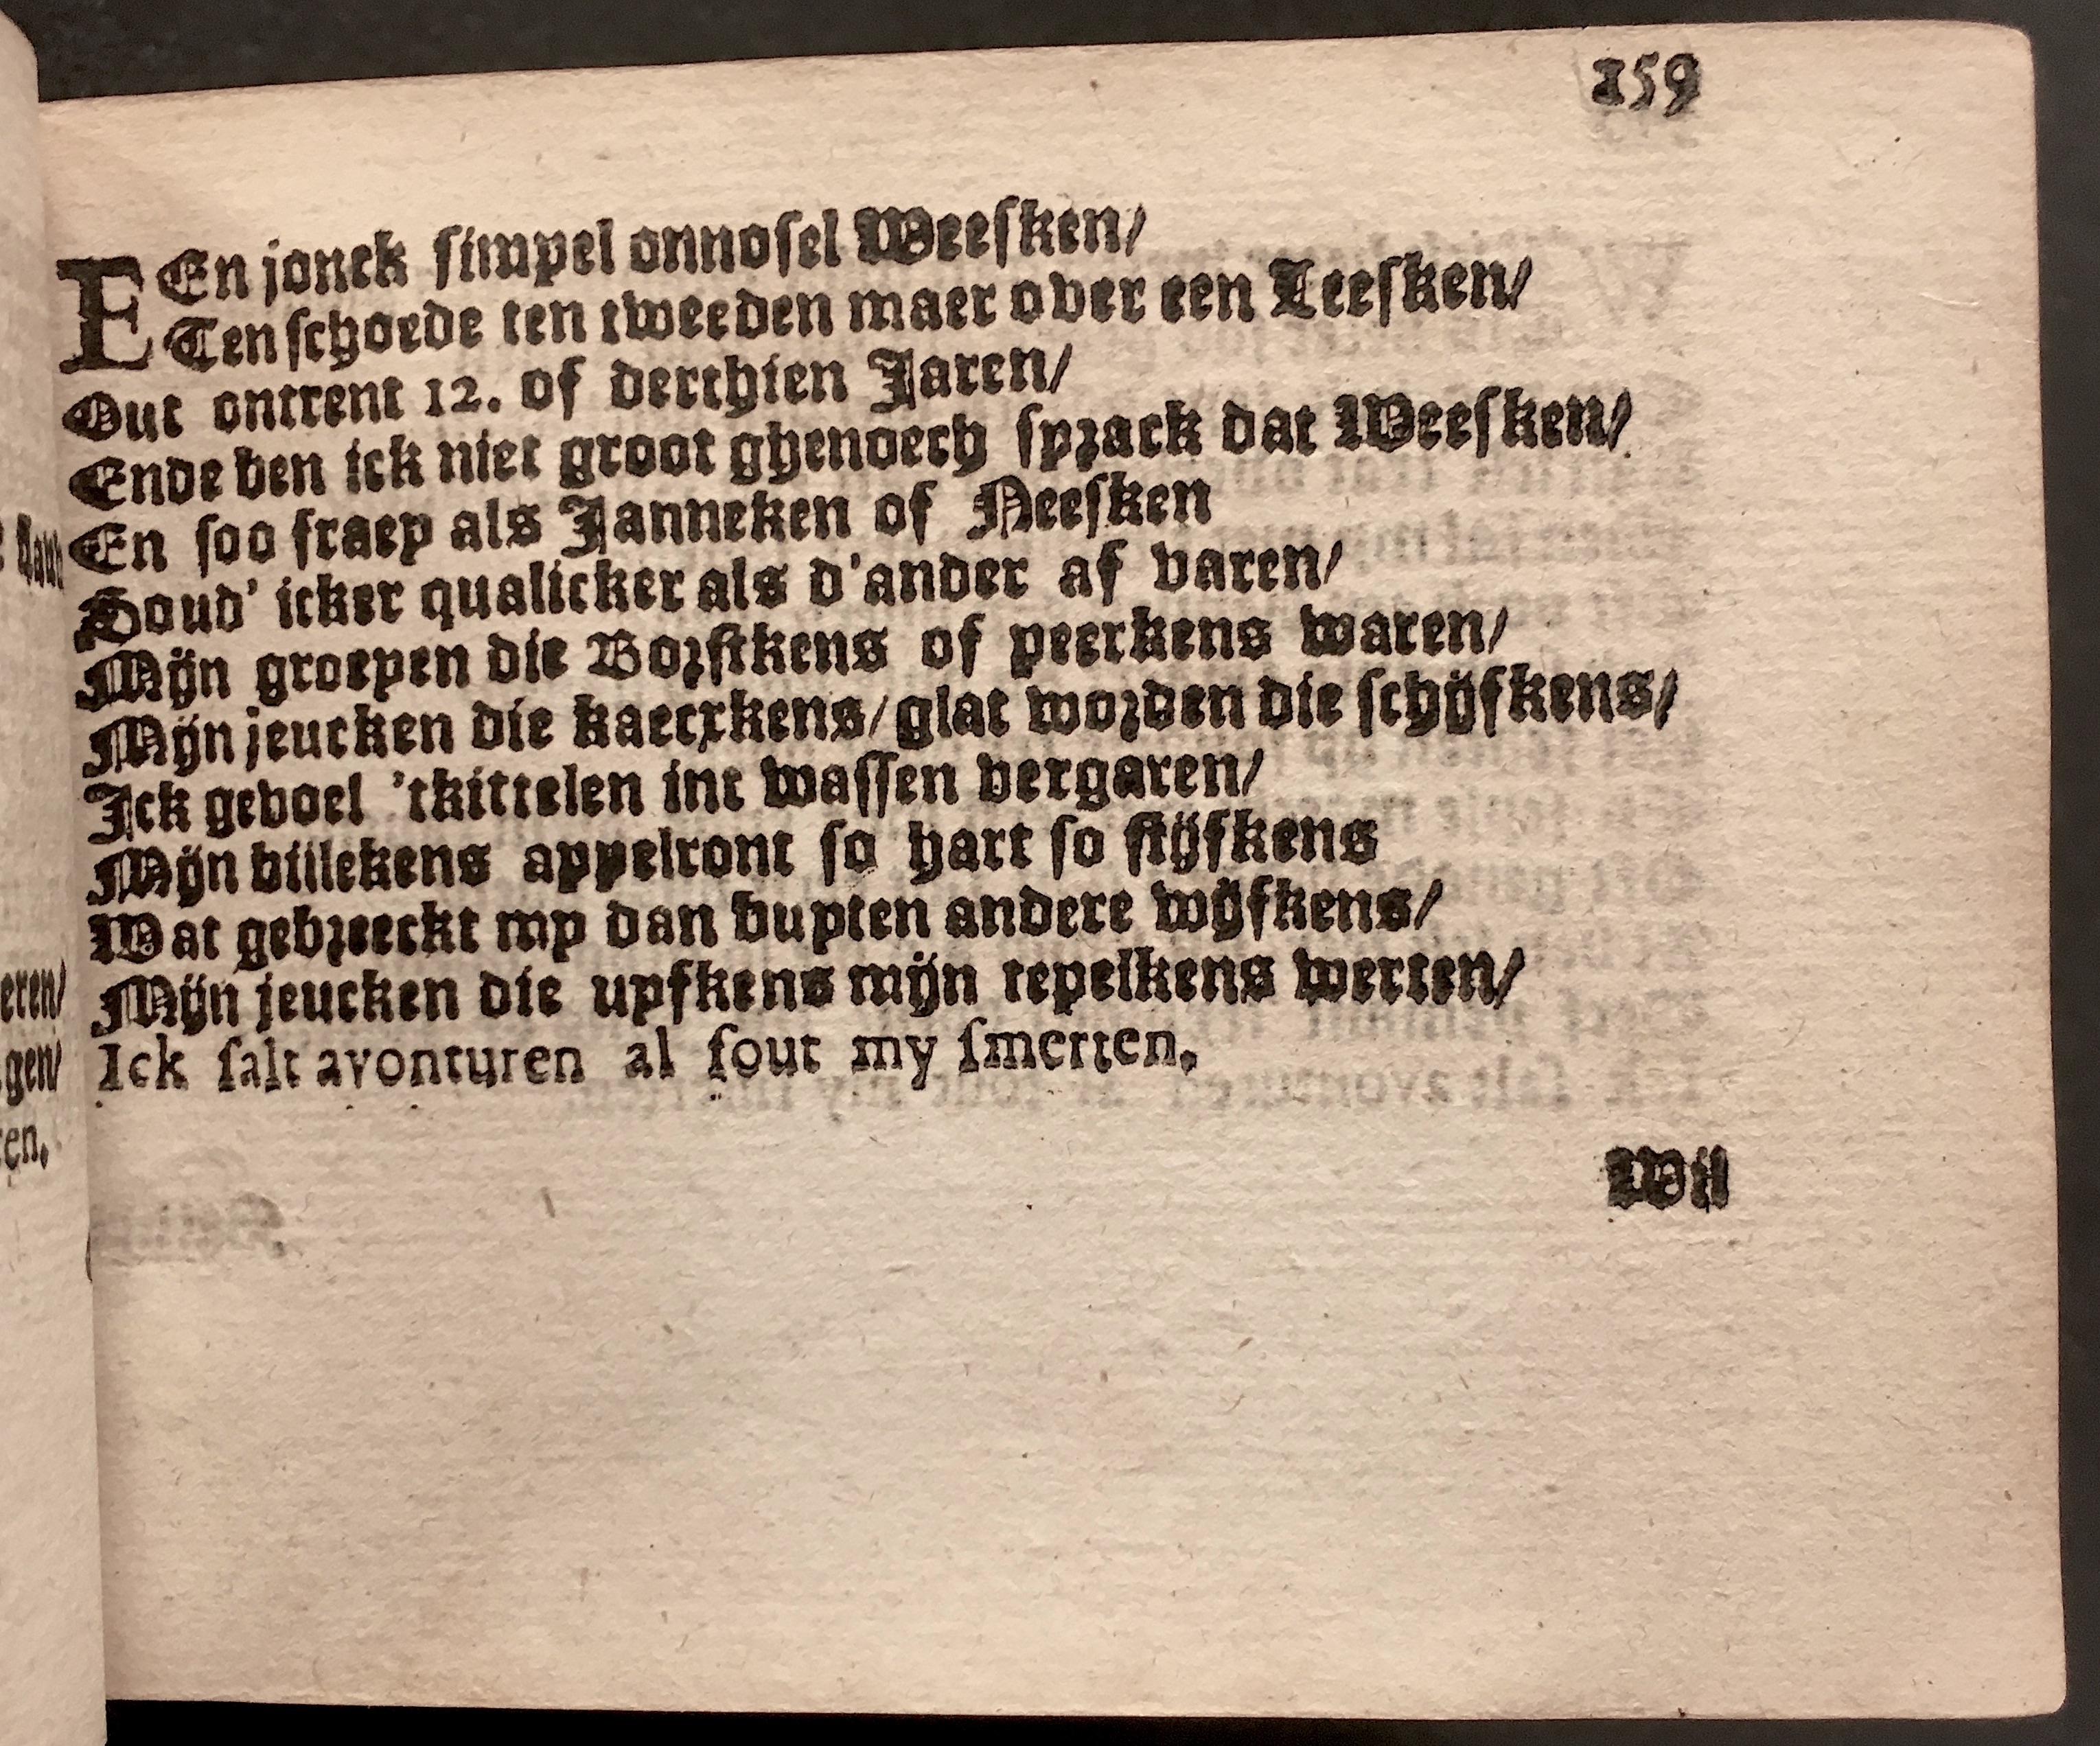 159
EEn jonck simpel onnosel Weesken/
Ten schoede ten tweeden maer over een Leesken/
Out ontrent 12. of derthien Jaren/
Ende ben ick niet groot ghenoech sprack dat Weesken/
En soo fraey als Janneken of Neesken
Soud' icker qualicker als d'ander af varen/
Mijn groeyen die Borstkens of peerkens waren/
Mijn jeucken die kaecxkens/ glat worden die schijfkens/
Ick gevoel 'tkittelen int wassen vergaren/
Mijn billekens appelront so hart so stijfkens
Wat gebreeckt my dan buyten andere wijfkens/
Mijn jeucken die upfkens mijn tepelkens werten/
Ick salt avonturen al sout my smerten.
Wil
eren/
gen/
en.